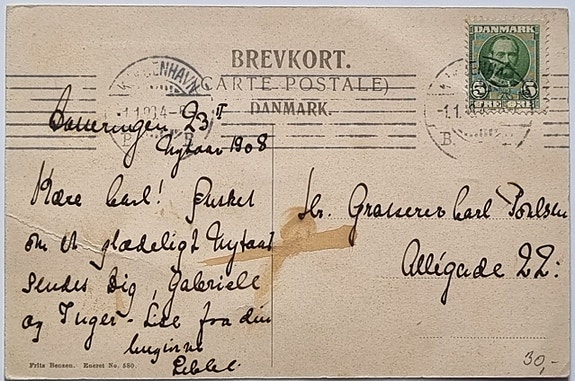 BREVKORT.
(CARTE POSTALE)
DANMARK.
DANMARK
5 5
ØRE ØRE
KJØBENHAVN
1.1 4-5
B. B.
1.1
B.
23 II
Nytaar 1908
Kære Carl! Ønsket
om et glædeligt Nytaar
sendes Dig, Gabriele
og Inger-Lise fra din
hengivne
Hr. Grosserer Carl Poulsen
Allégade 22:
Fritz Benzen. Eneret No. 580.
30,-